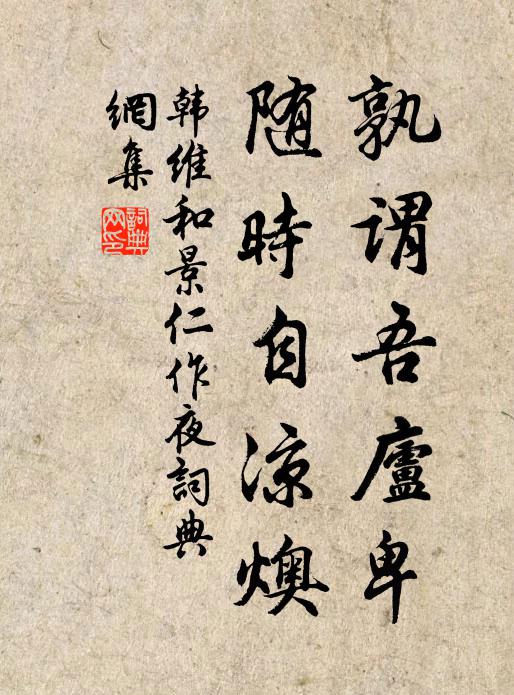 孰謂吾廬卑
随時自涼燠
韩維和景仁作夜詞典
網集
詞典網印